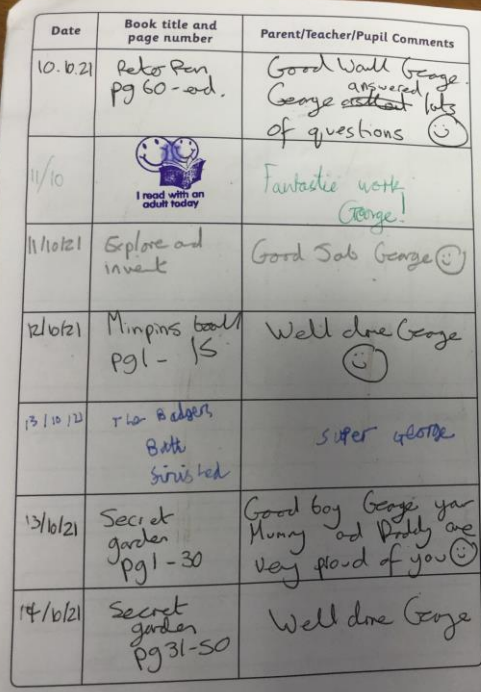 Date
Book title and
page number
Parent/Teacher/Pupil Comments
10.10.21
Peter Pan
pg 60-end.
Good Work George.
answered
George lots
of questions
11/10
I read with an
adult today
Fantastic work
George!
11/10/21
Explore and
invent
Good Job George
12/10/21
Minpins book
pg1 - 15
Well done George
13/10/21
The Badgers
Bath
finished
super George
13/10/21
Secret
garden
pg1-30
Good boy George your
Mummy and Daddy are
very proud of you
14/10/21
Secret
garden
pg31-50
Well done George